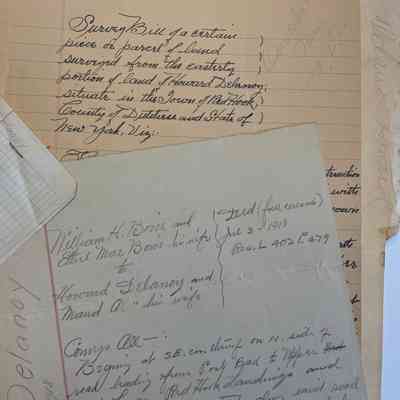 Survey Bill of a certain
piece or parcel of land
surveyed from the easterly
portion of land of Howard Delanoy,
situate in the Town of Red Hook,
County of Dutchess and State of
New York, Viz:
with
William H. Bois and
Ethel Mae Bois his wife
to
Howard Delanoy and
Maud A. " his wife
Deed (full covenant)
1913
402 P 279
Conveys All—:
Begining at SE. cor. on N. side of
road leading from Post Road to Upper
Red Hook Landing and
said road
Delanoy